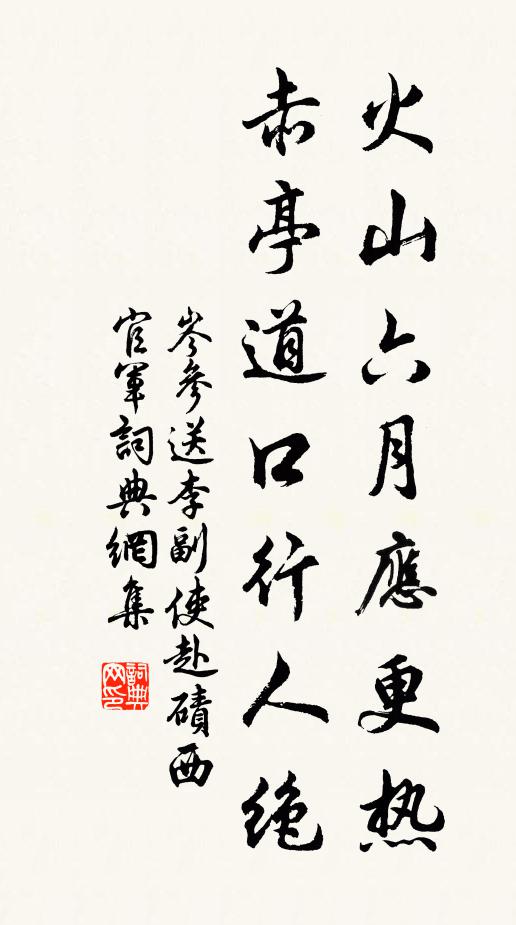 火山六月應更热
赤亭道口行人绝
岑參送李副使赴磧西
官軍詞典網集
詞典网印